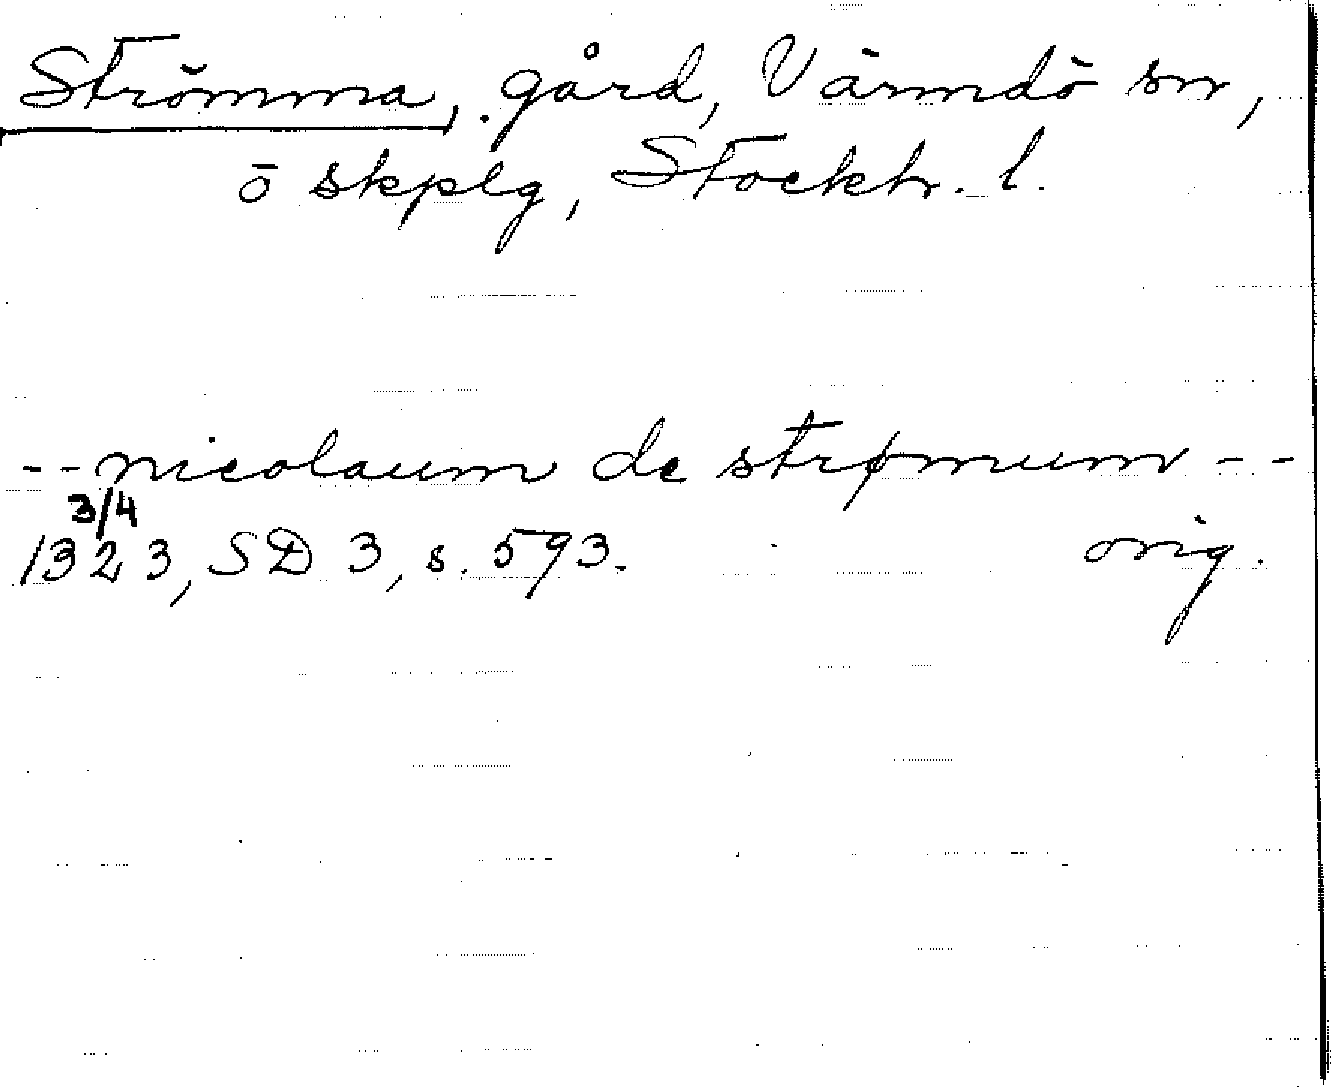 Strömma, gård, Värmdö sn,
ö skplg, Stockh. l.
--nicolaum de strømum--
3/4
1323, SD 3, s. 593. orig.